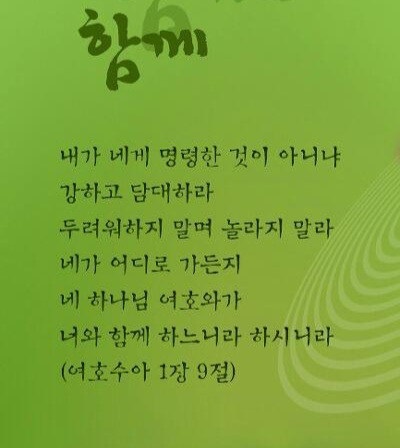 함께
내가 네게 명령한 것이 아니냐
강하고 담대하라
두려워하지 말며 놀라지 말라
네가 어디로 가든지
네 하나님 여호와가
너와 함께 하느니라 하시니라
(여호수아 1장 9절)